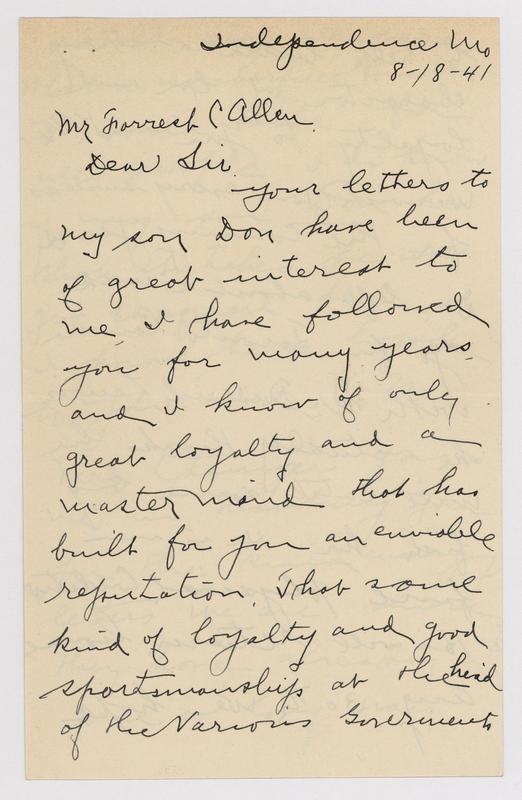 Independence Mo
8-18-41
Mr Forrest C Allen.
Dear Sir.
your letters to
my son Don have been
of great interest to
me, I have followed
you for many years.
and I know of only
great loyalty and a
master mind that has
built for you an enviable
reputation. That same
kind of loyalty and good
sportsmanship at the head
of the Various Goverments